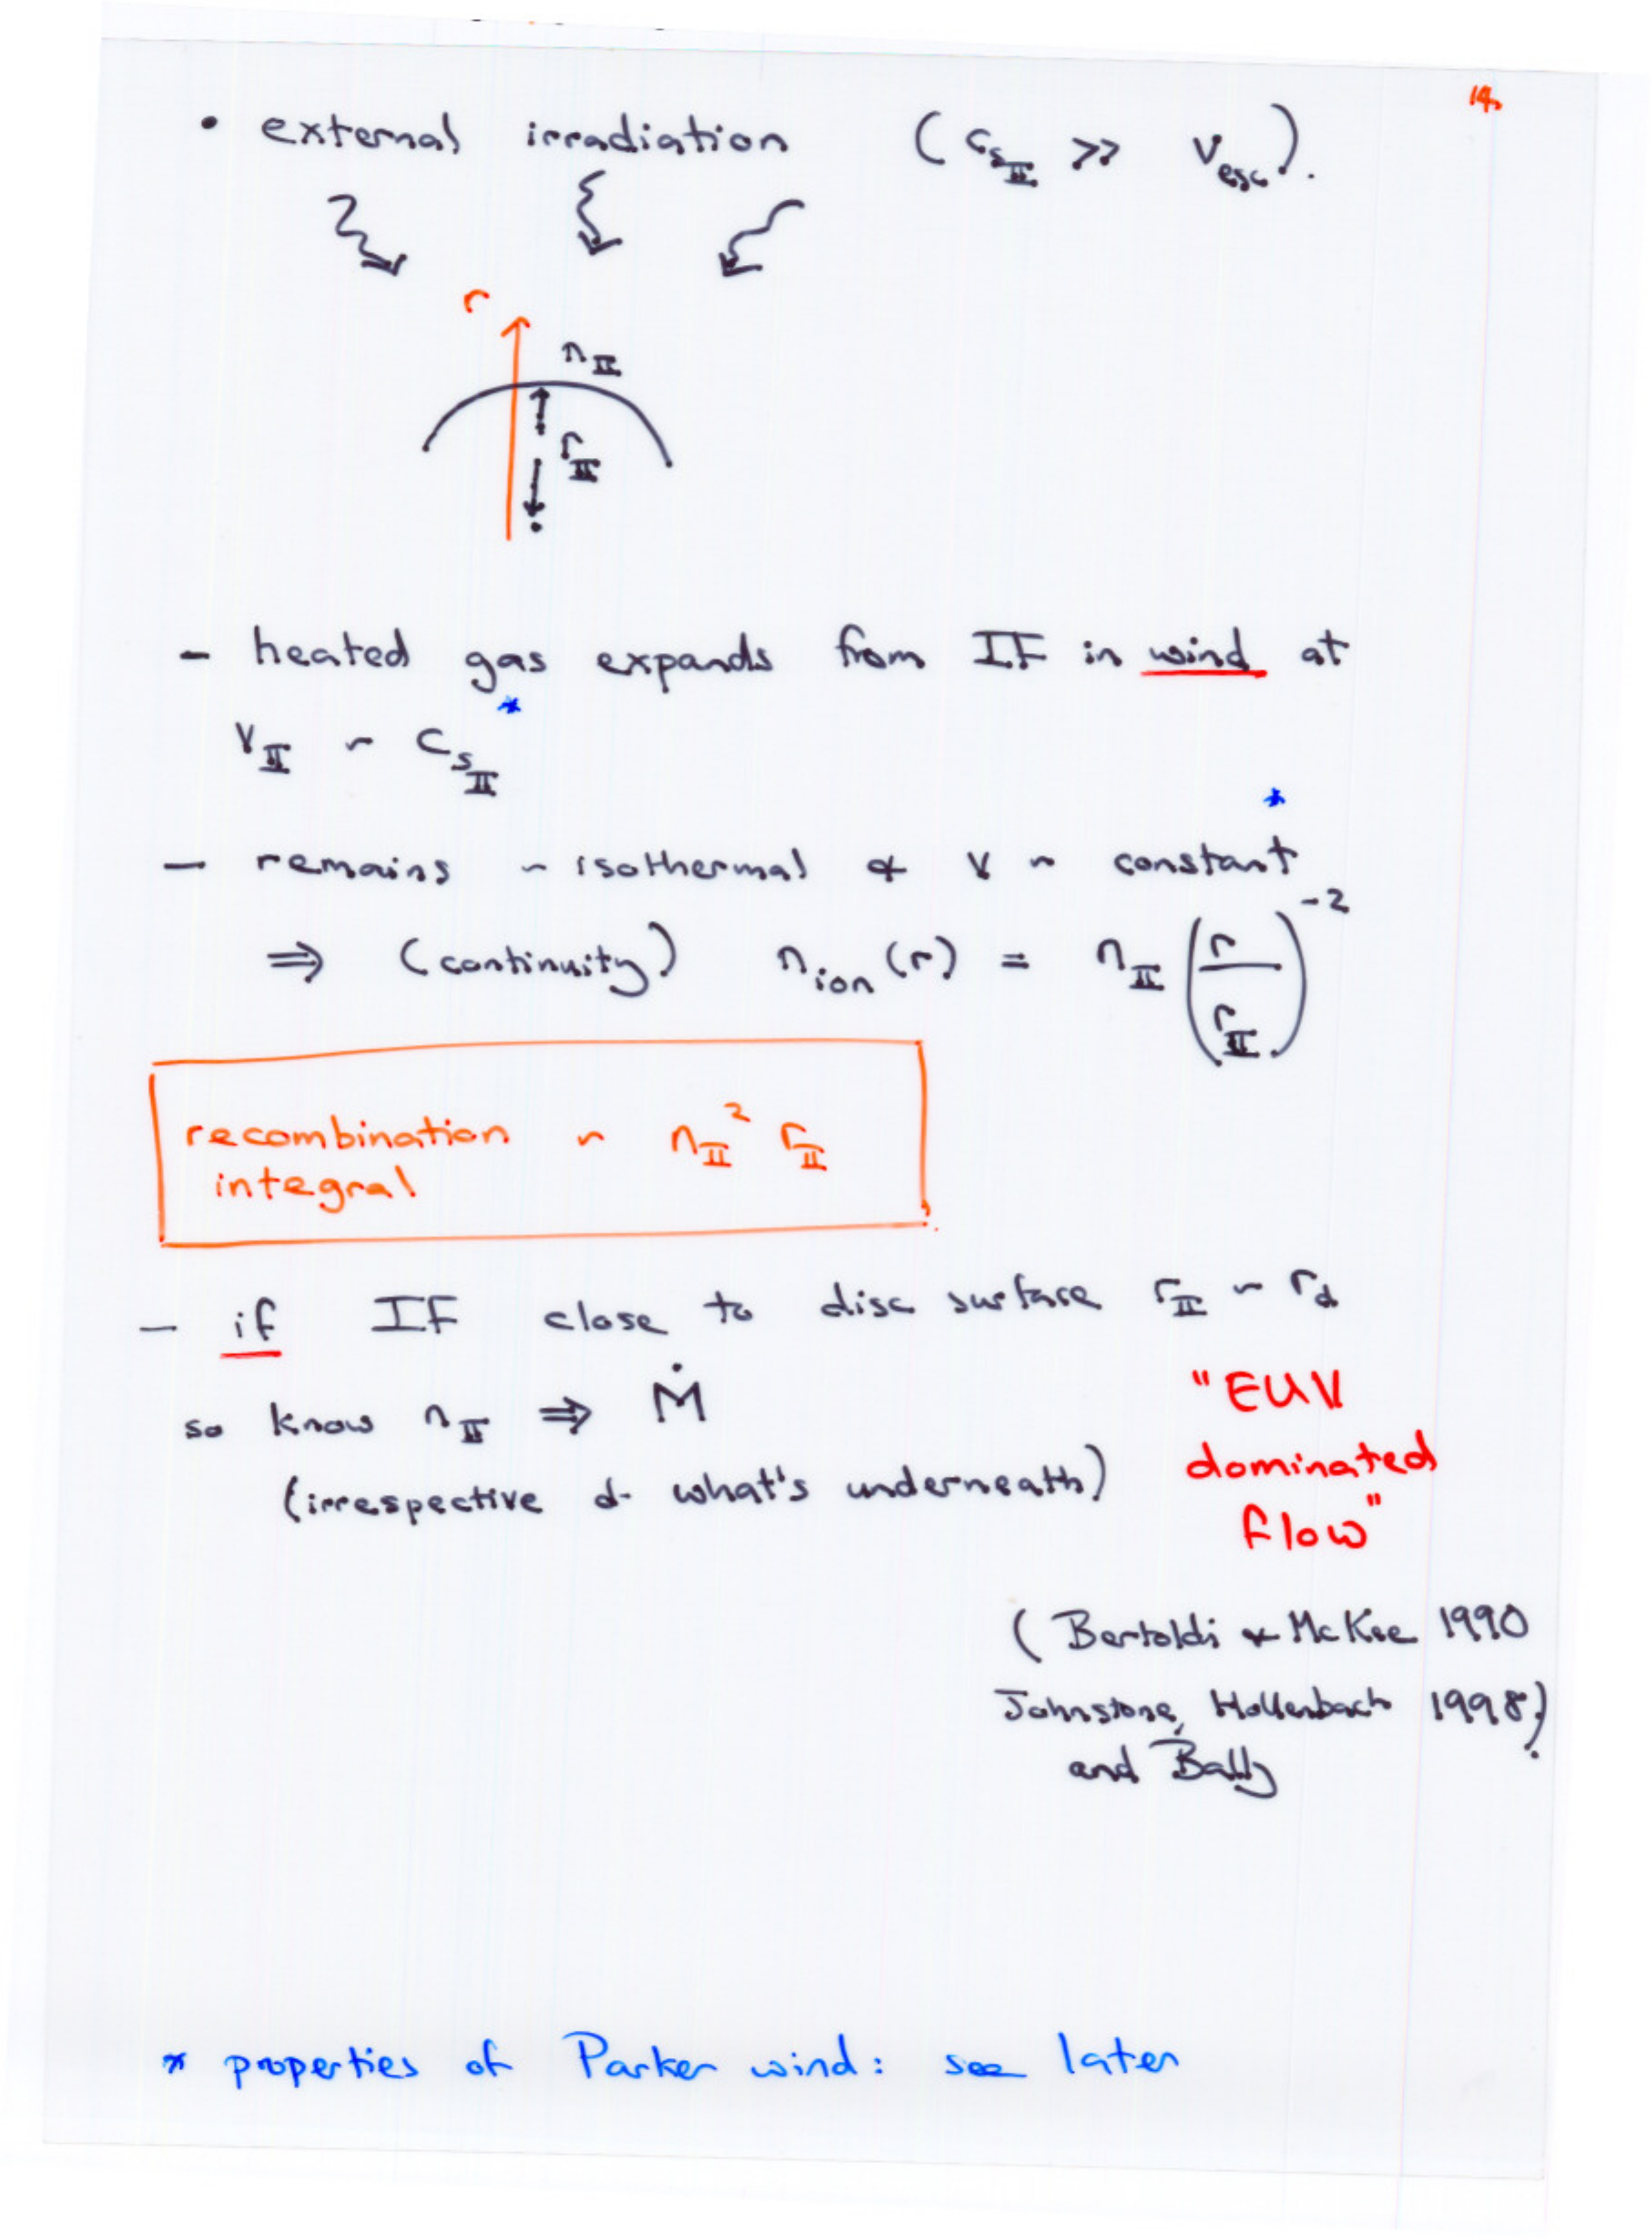 14.
• external irradiation (c_{s_II} >> v_esc).
r
n_II
r_II
– heated gas expands from IF in wind at
v_II ~ c_{s_II} *
– remains ~ isothermal & v ~ constant *
⇒ (continuity) n_ion (r) = n_II (r / r_II)^{-2}
recombination ~ n_II^2 r_II
integral
– if IF close to disc surface r_II ~ r_d
so know n_II ⇒ Ṁ
(irrespective of what's underneath)
"EUV
dominated
flow"
(Bertoldi & McKee 1990
Johnstone, Hollenbach 1998).
and Bally
* properties of Parker wind: see later